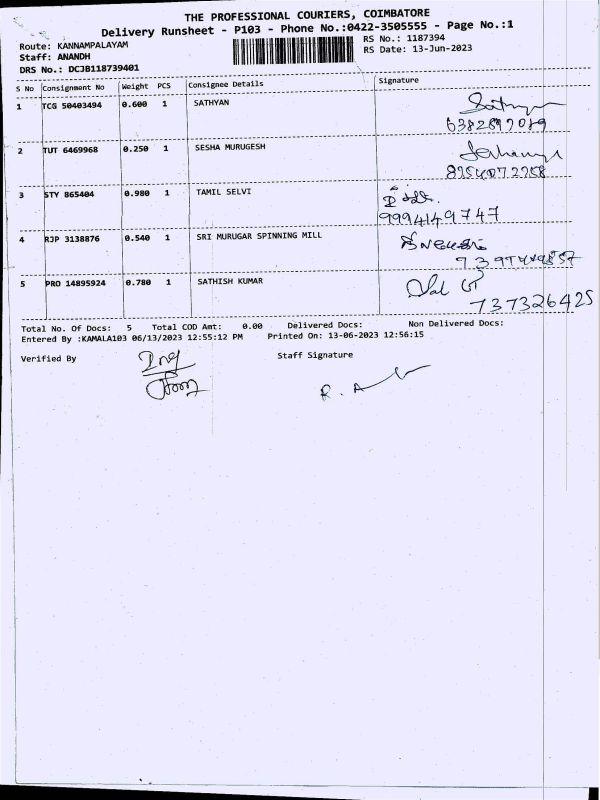 THE PROFESSIONAL COURIERS, COIMBATORE
Delivery Runsheet - P103 - Phone No.:0422-3505555 - Page No.:1
Route: KANNAMPALAYAM
RS No.: 1187394
Staff: ANANDH
RS Date: 13-Jun-2023
DRS No.: DCJB118739401
S No Consignment No Weight PCS Consignee Details Signature
1 TCG 50403494 0.600 1 SATHYAN
2 TUT 6469968 0.250 1 SESHA MURUGESH
3 STY 865404 0.980 1 TAMIL SELVI
9994149747
4 RJP 3138876 0.540 1 SRI MURUGAR SPINNING MILL
5 PRO 14895924 0.780 1 SATHISH KUMAR
737326425
Total No. Of Docs: 5 Total COD Amt: 0.00 Delivered Docs: Non Delivered Docs:
Entered By :KAMALA103 06/13/2023 12:55:12 PM Printed On: 13-06-2023 12:56:15
Verified By Staff Signature